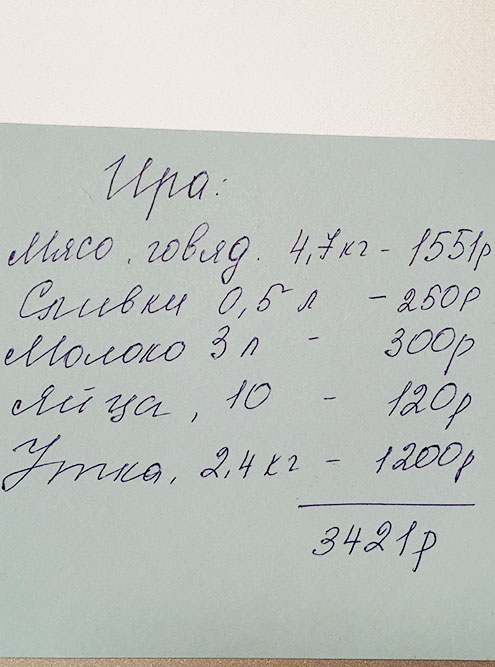 Ира:
Мясо. говяд. 4,7кг - 1551р
Сливки 0,5 л - 250р
Молоко 3 л - 300р
Яйца, 10 - 120р
Утка, 2,4 кг - 1200р
3421р